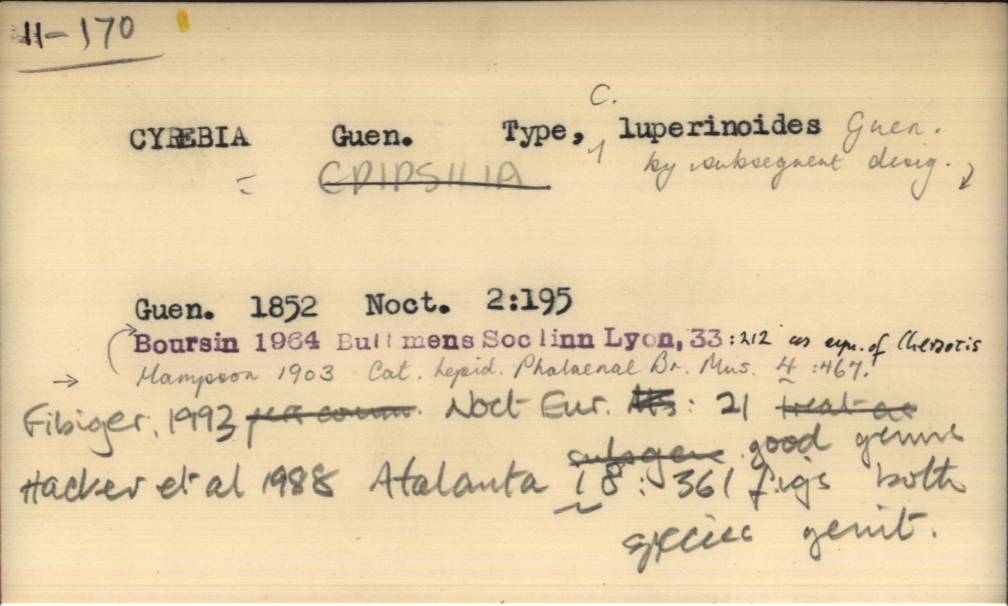 11-170
C.
CYREBIA Guen. Type, luperinoides Guen.
= EPIPSILIA by subsequent desig.
Guen. 1852 Noct. 2:195
Boursin 1964 Bull mens Soc linn Lyon, 33:212 as syn. of Chersotis
Hampson 1903 Cat. Lepid. Phalaenae Br. Mus. 4:467.
Fibiger, 1993 pers comm. Noct Eur. : 21 treat as
subgen good genus
Hacker et al 1988 Atalanta 18: 361 figs both
species genit.